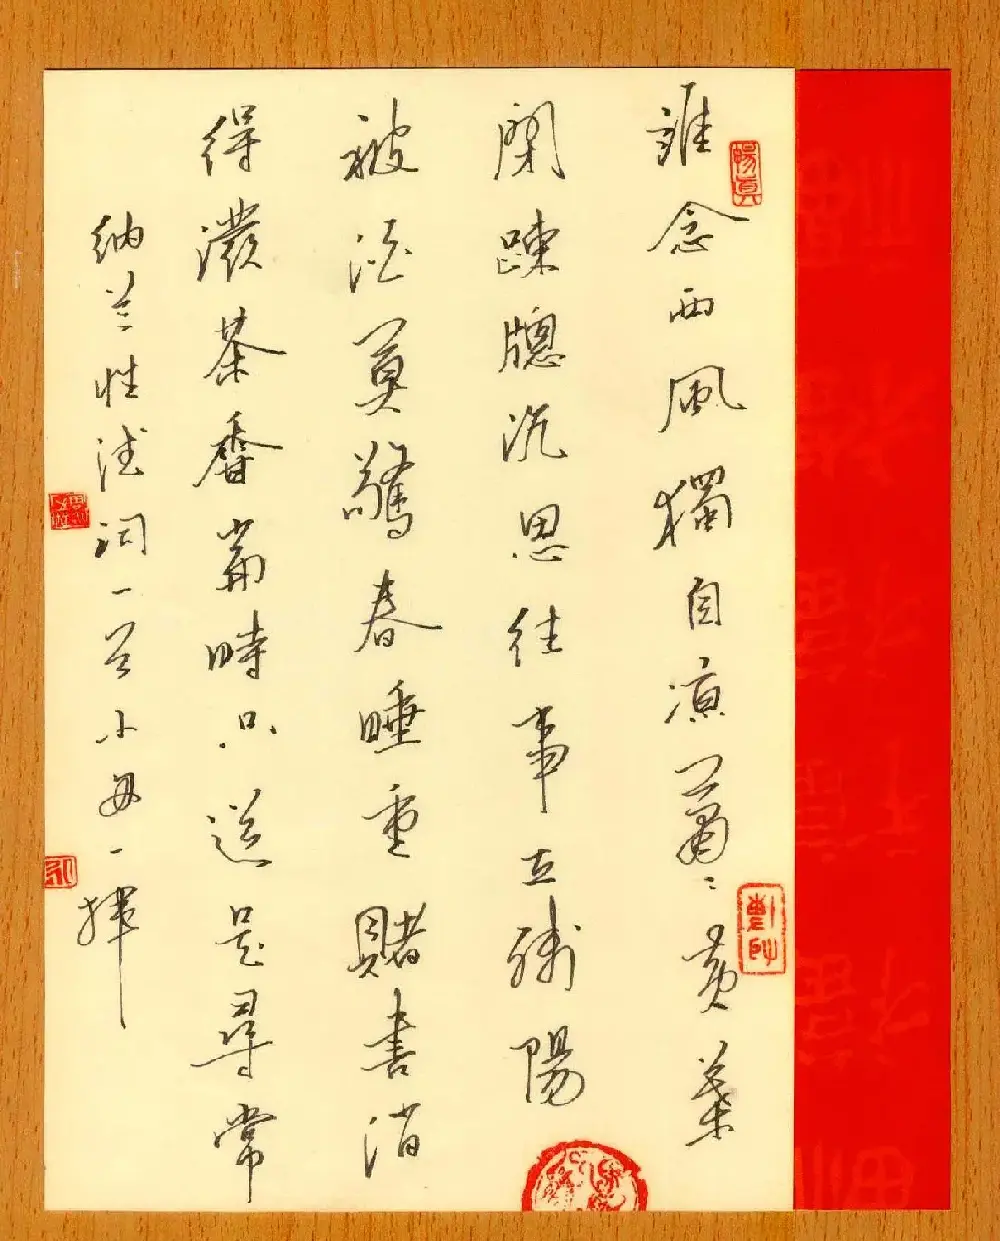 誰念西風獨自凉蕭〻黄葉
閉疎牕沉思往事立殘陽
被酒莫驚春睡重賭書消
得潑茶香當時只道是尋常
纳兰性德词一首小毋一揮